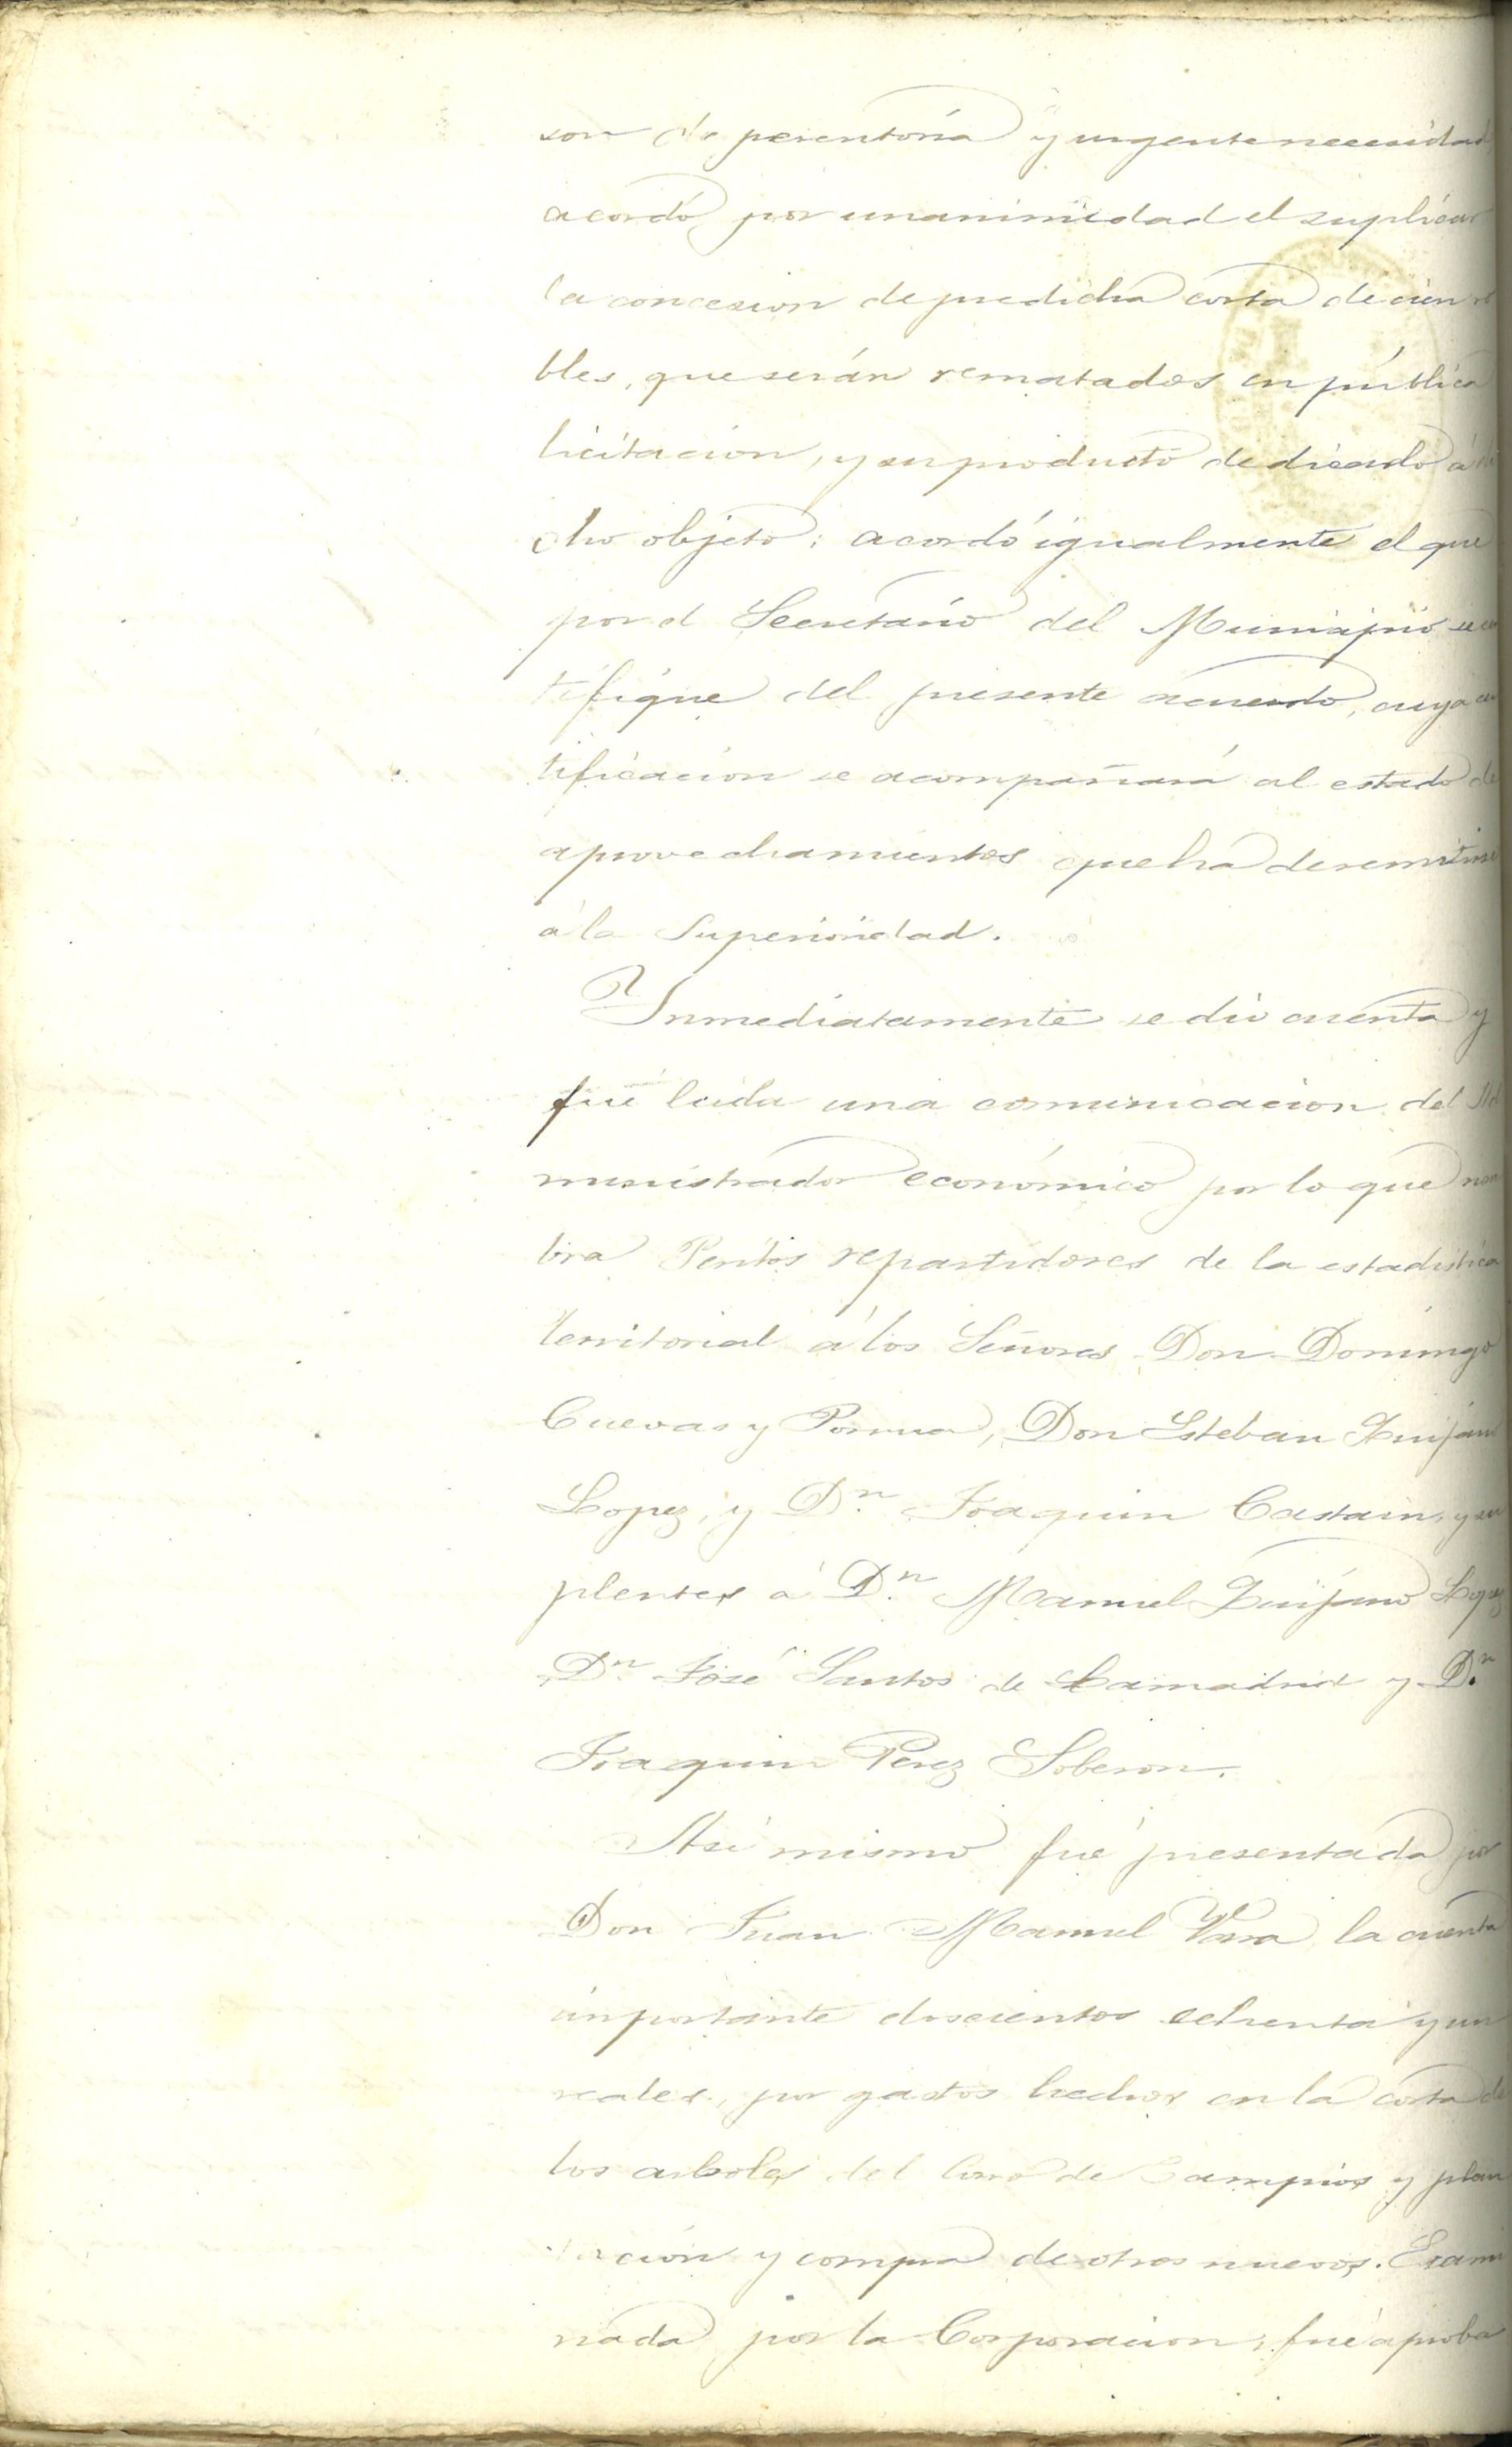 son de perentoria y urgente necesidad
acordó por unanimidad el suplicar
la concesion de predicha corta de cien ro
bles, que serán rematados en pública
licitacion, y su producto dedicarlo á di
cho objeto: acordó igualmente el que
por el Secretario del Municipio se cer
tifique del presente acuerdo, cuya cer
tificacion se acompañará al estado de
aprovechamientos que ha de remitirse
á la Superioridad.
Inmediatamente se dió cuenta y
fué leida una comunicacion del Ad
ministrador económico por lo que nom
bra Peritos repartidores de la estadistica
territorial á los Señores Don Domingo
Cuevas y Porrua, Don Esteban Quijano
Lopez, y Dn. Joaquin Castain, y su
plentes á Dn. Manuel Quijano Lopez
Dn. José Santos de Lamadrid y Dn.
Joaquin Perez Soberon.
Asi mismo fué presentada por
Don Juan Manuel Vara la cuenta
importante doscientos ochenta y un
reales, por gastos hechos en la corta de
los arboles del Corro de Campios y plan
tacion y compra de otros nuevos. Exami
nada por la Corporacion, fué aproba